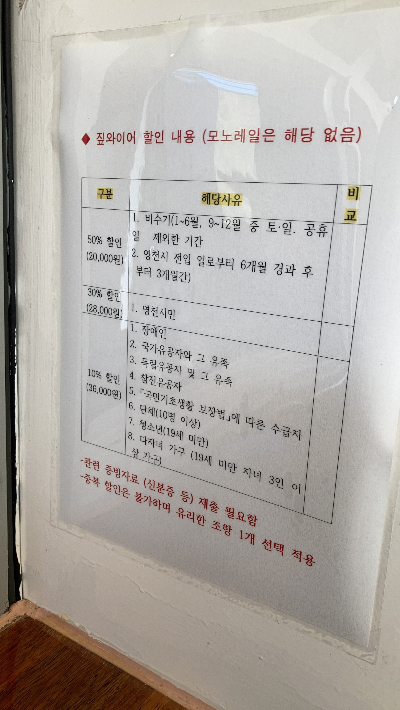 ◆ 짚와이어 할인 내용 (모노레일은 해당 없음)
구분 해당사유 비고
50% 할인
(20,000원)
1. 비수기(1~6월, 9~12월 중 토·일. 공휴
일 제외한 기간
2. 영천시 전입 일로부터 6개월 경과 후
부터 3개월간)
30% 할인
(28,000원)
1. 영천시민
10% 할인
(36,000원)
1. 장애인
2. 국가유공자와 그 유족
3. 독립유공자 및 그 유족
4. 참전유공자
5. 『국민기초생활 보장법』에 따른 수급자
6. 단체(10명 이상)
7. 청소년(19세 미만)
8. 다자녀 가구 (19세 미만 자녀 3인 이
상 가구)
-관련 증빙자료 (신분증 등) 제출 필요함
-중복 할인은 불가하며 유리한 조항 1개 선택 적용